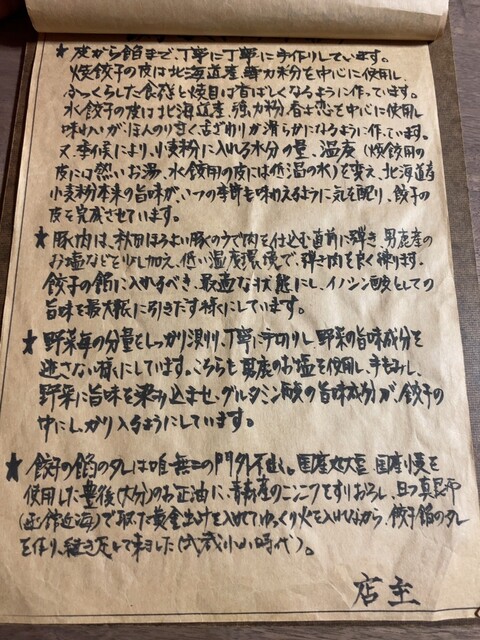 ★ 皮から餡まで、丁寧に丁寧に手作りしています。
焼餃子の皮は北海道産、薄力粉を中心に使用し、
ふっくらした食感と焼目は香ばしくなるように作っています。
水餃子の皮は北海道産、強力粉、春よ恋を中心に使用し
味わいがほんのり甘く舌ざわりが滑らかになるように作っています。
又、季候により、小麦粉に入れる水分の量、温度(焼餃用の
皮には熱いお湯、水餃用の皮には低温の水)を変え、北海道産
小麦粉本来の旨味が、いつの季節も味わえるように気を配り、餃子の
皮を完成させています。
★ 豚肉は、秋田ほろよい豚のウデ肉を仕込む直前に弾き、男鹿産の
お塩などを少し加え、低い温度環境で、弾き肉を良く練ります。
餃子の餡に入れるべき、最適な状態にし、イノシン酸としての
旨味を最大限に引きだす様にしています。
★ 野菜毎の分量をしっかり測り、丁寧に手切りし、野菜の旨味成分を
逃さない様にしています。こちらも男鹿のお塩を使用し、手もみし、
野菜に旨味を染み込ませ、グルタミン酸の旨味成分が、餃子の
中にしっかり入るようにしています。
★ 餃子の餡のタレは唯一無二の門外不出。国産丸大豆、国産小麦を
使用した豊後(大分)のお正油に、青森産のニンニクをすりおろし、且つ真昆布
(函館近海)で取った黄金出汁を入れてゆっくり火を入れながら、餃子餡のタレ
を作り、継ぎ足して来ました(武蔵小山時代)。
店主